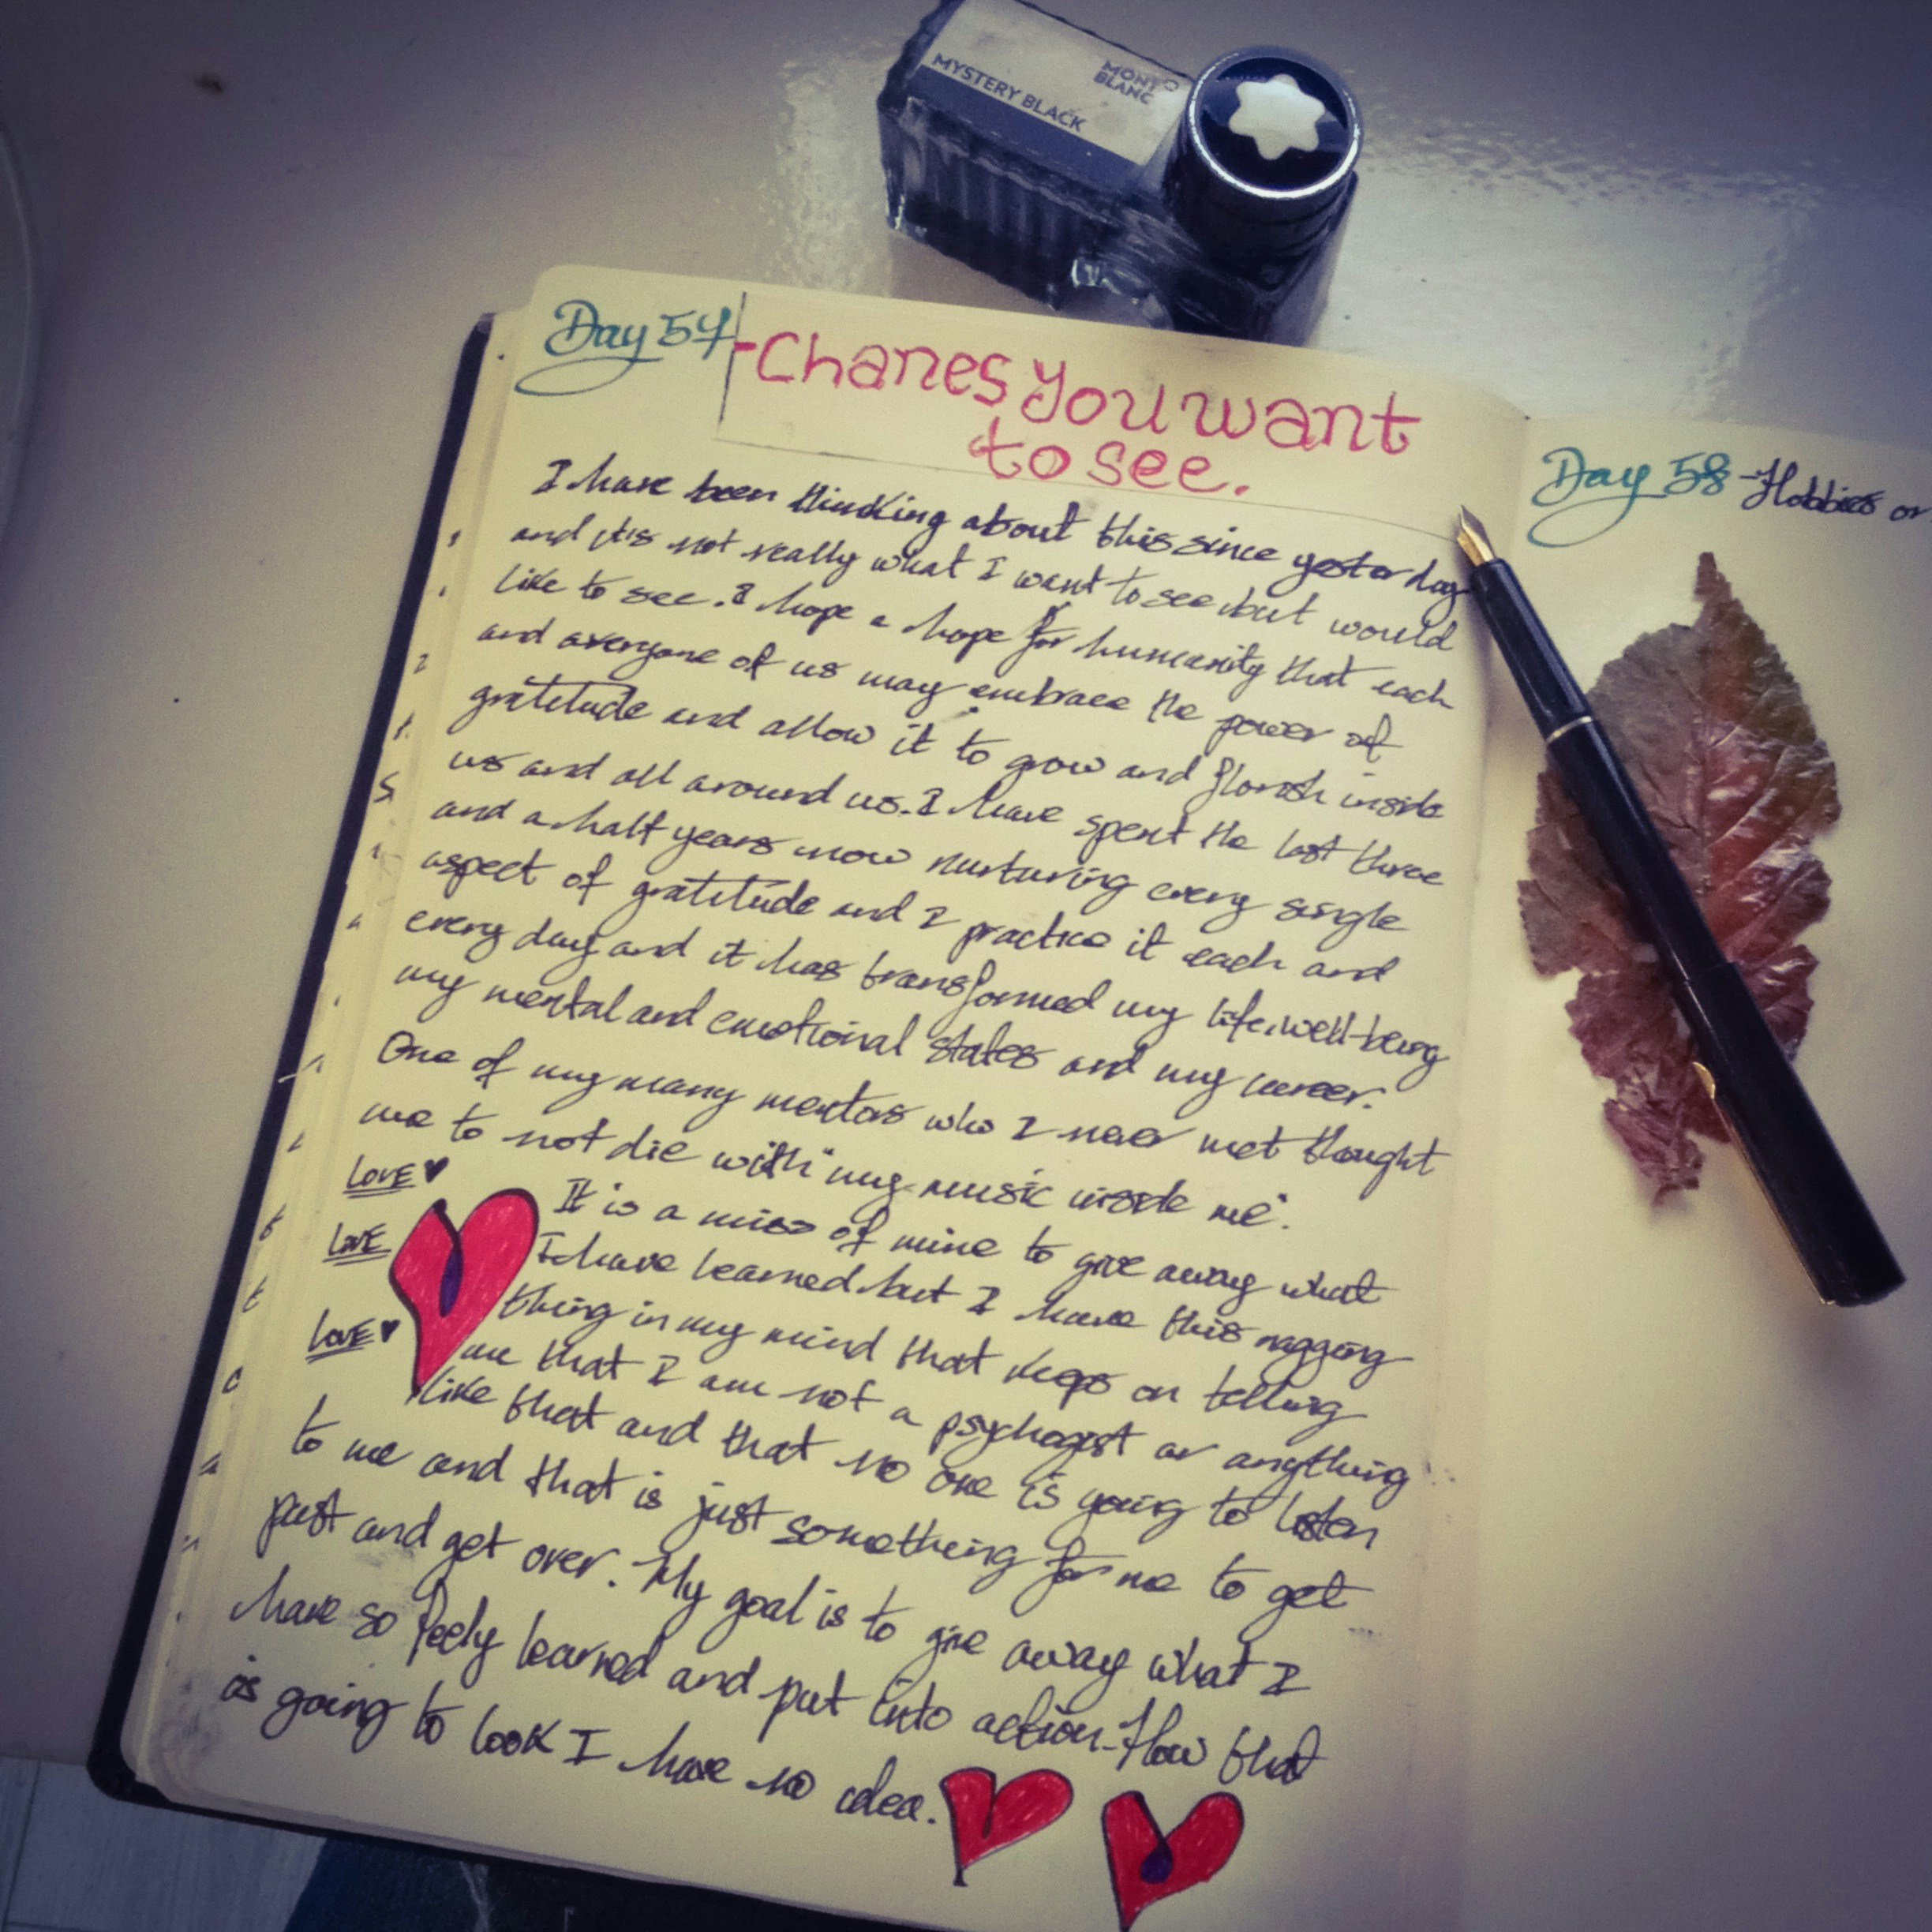 MONT
BLANC
MYSTERY BLACK
Day 57
-Chanes you want
to see.
I have been thinking about this since yesterday
and it's not really what I want to see but would
like to see. I hope a hope for humanity that each
and everyone of us may embrace the power of
gratitude and allow it to grow and florish inside
us and all around us. I have spent the last three
and a half years now nurturing every single
aspect of gratitude and I practice it each and
every day and it has transformed my life, well-being
my mental and emotional states and my career.
One of my many mentors who I never met thought
me to not die with "my music inside me".
LOVE ♥
It is a miss of mine to give away what
LOVE
I have learned but I have this nagging
thing in my mind that keeps on telling
LOVE ♥
me that I am not a psychogist or anything
like that and that no one is going to listen
to me and that is just something for me to get
past and get over. My goal is to give away what I
have so feely learned and put into action. How that
is going to look I have no idea.
Day 58 - Hobbies or